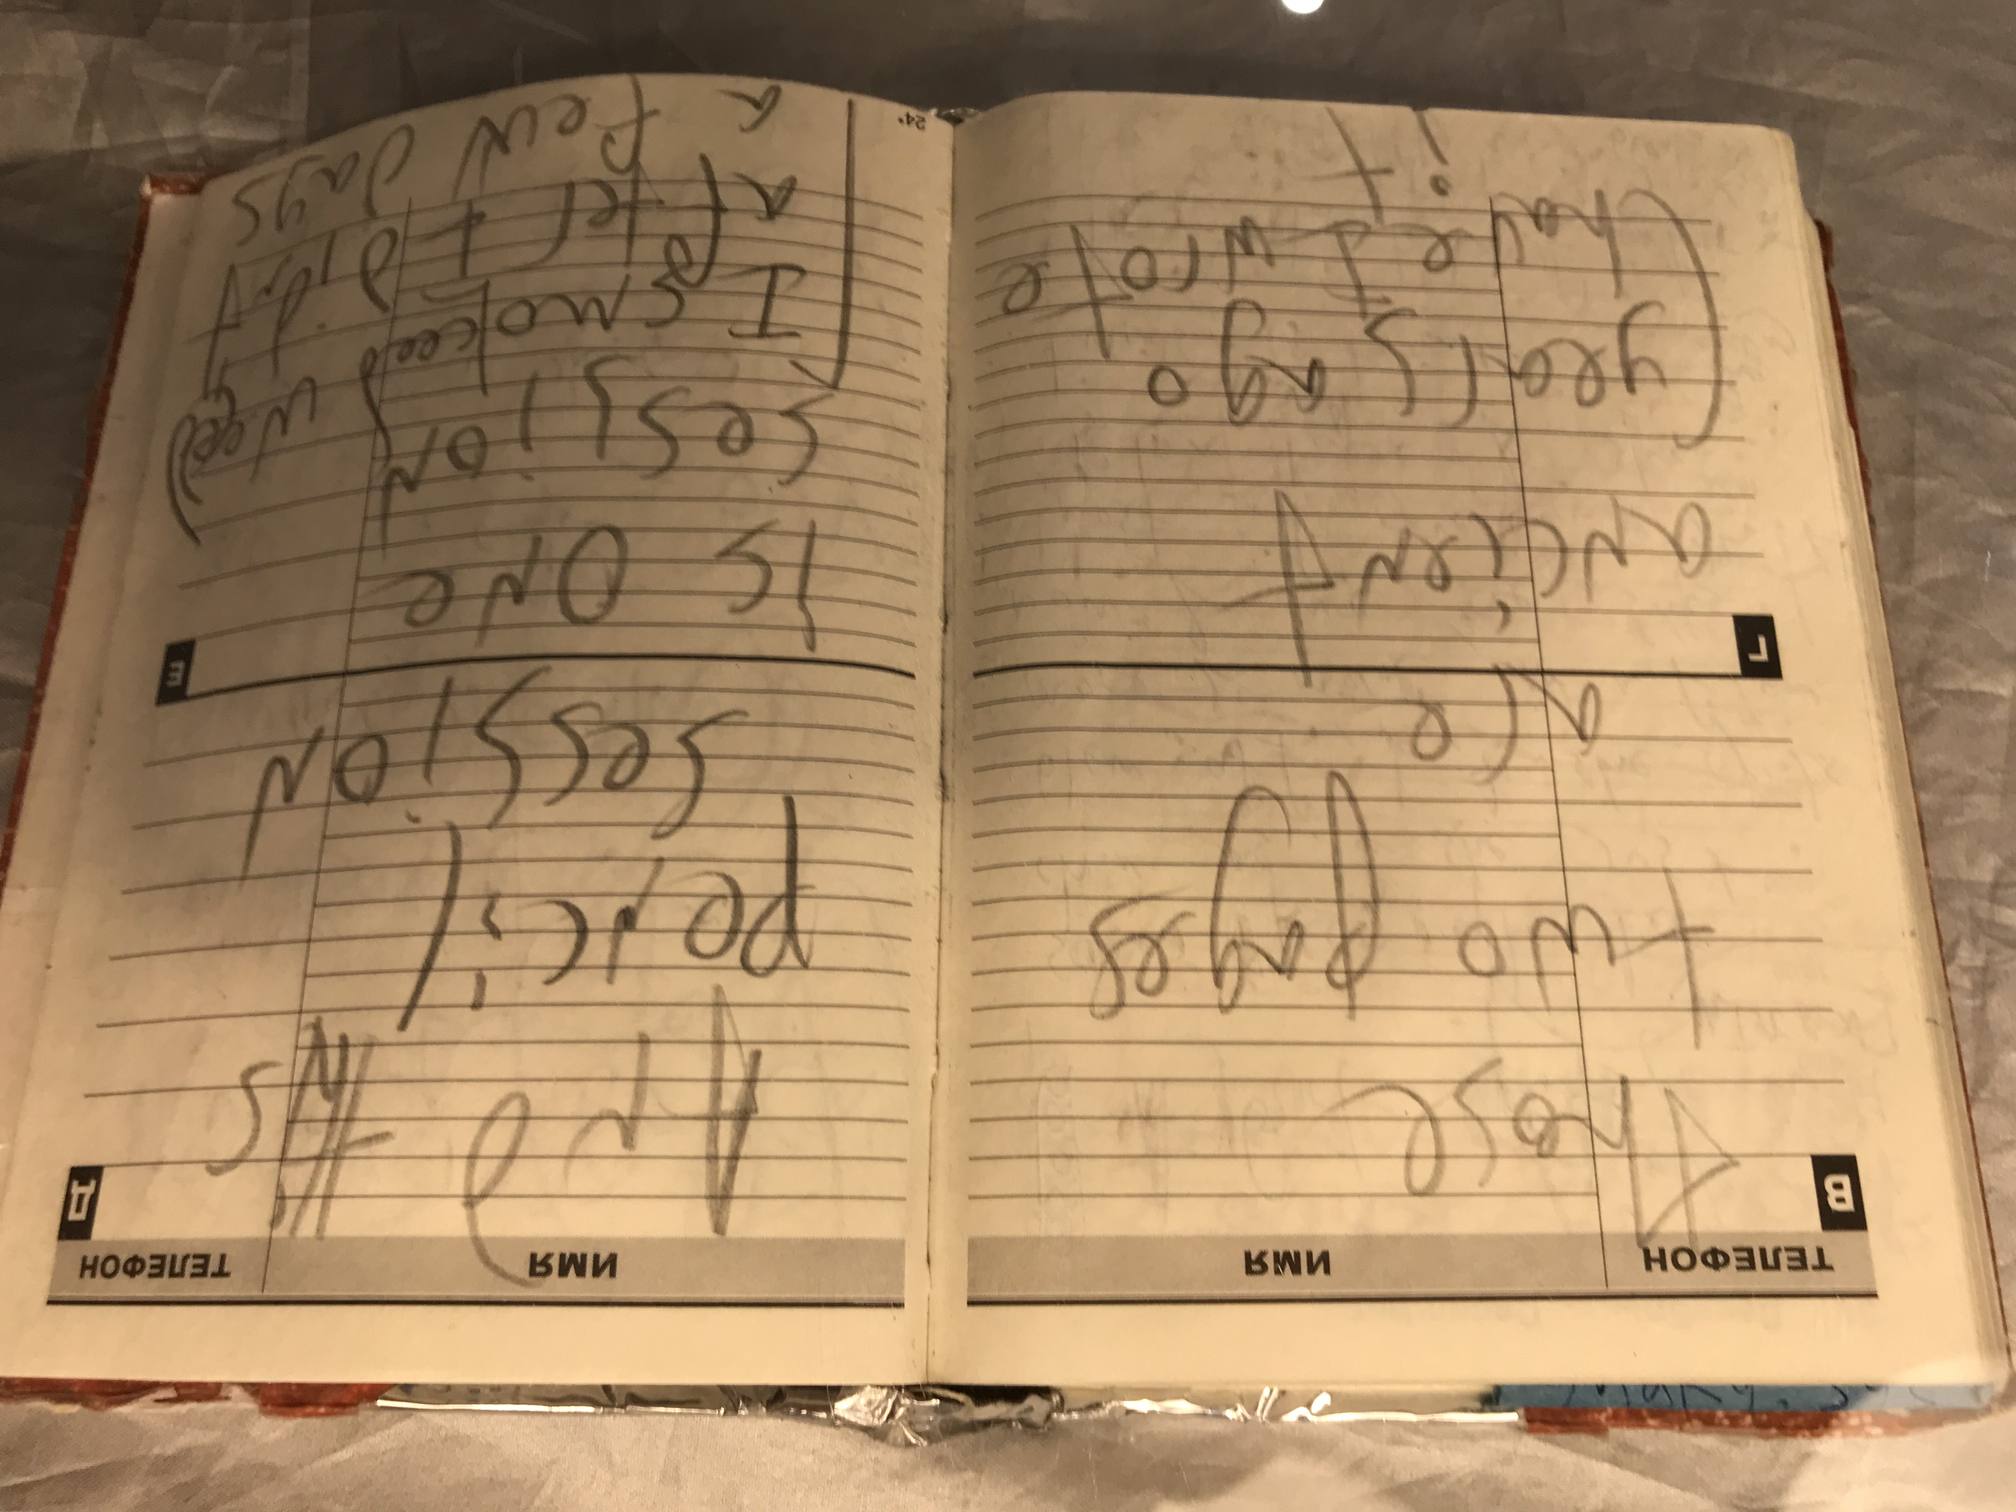 ТЕЛЕФОН ИМЯ
В
those
two pages
are
Г
ancient
(years ago
have I wrote
it
ИМЯ ТЕЛЕФОН
Д
And this
pencil
session
Е
is one
session
(I smoked weed)
after I didn't
a few days
24*